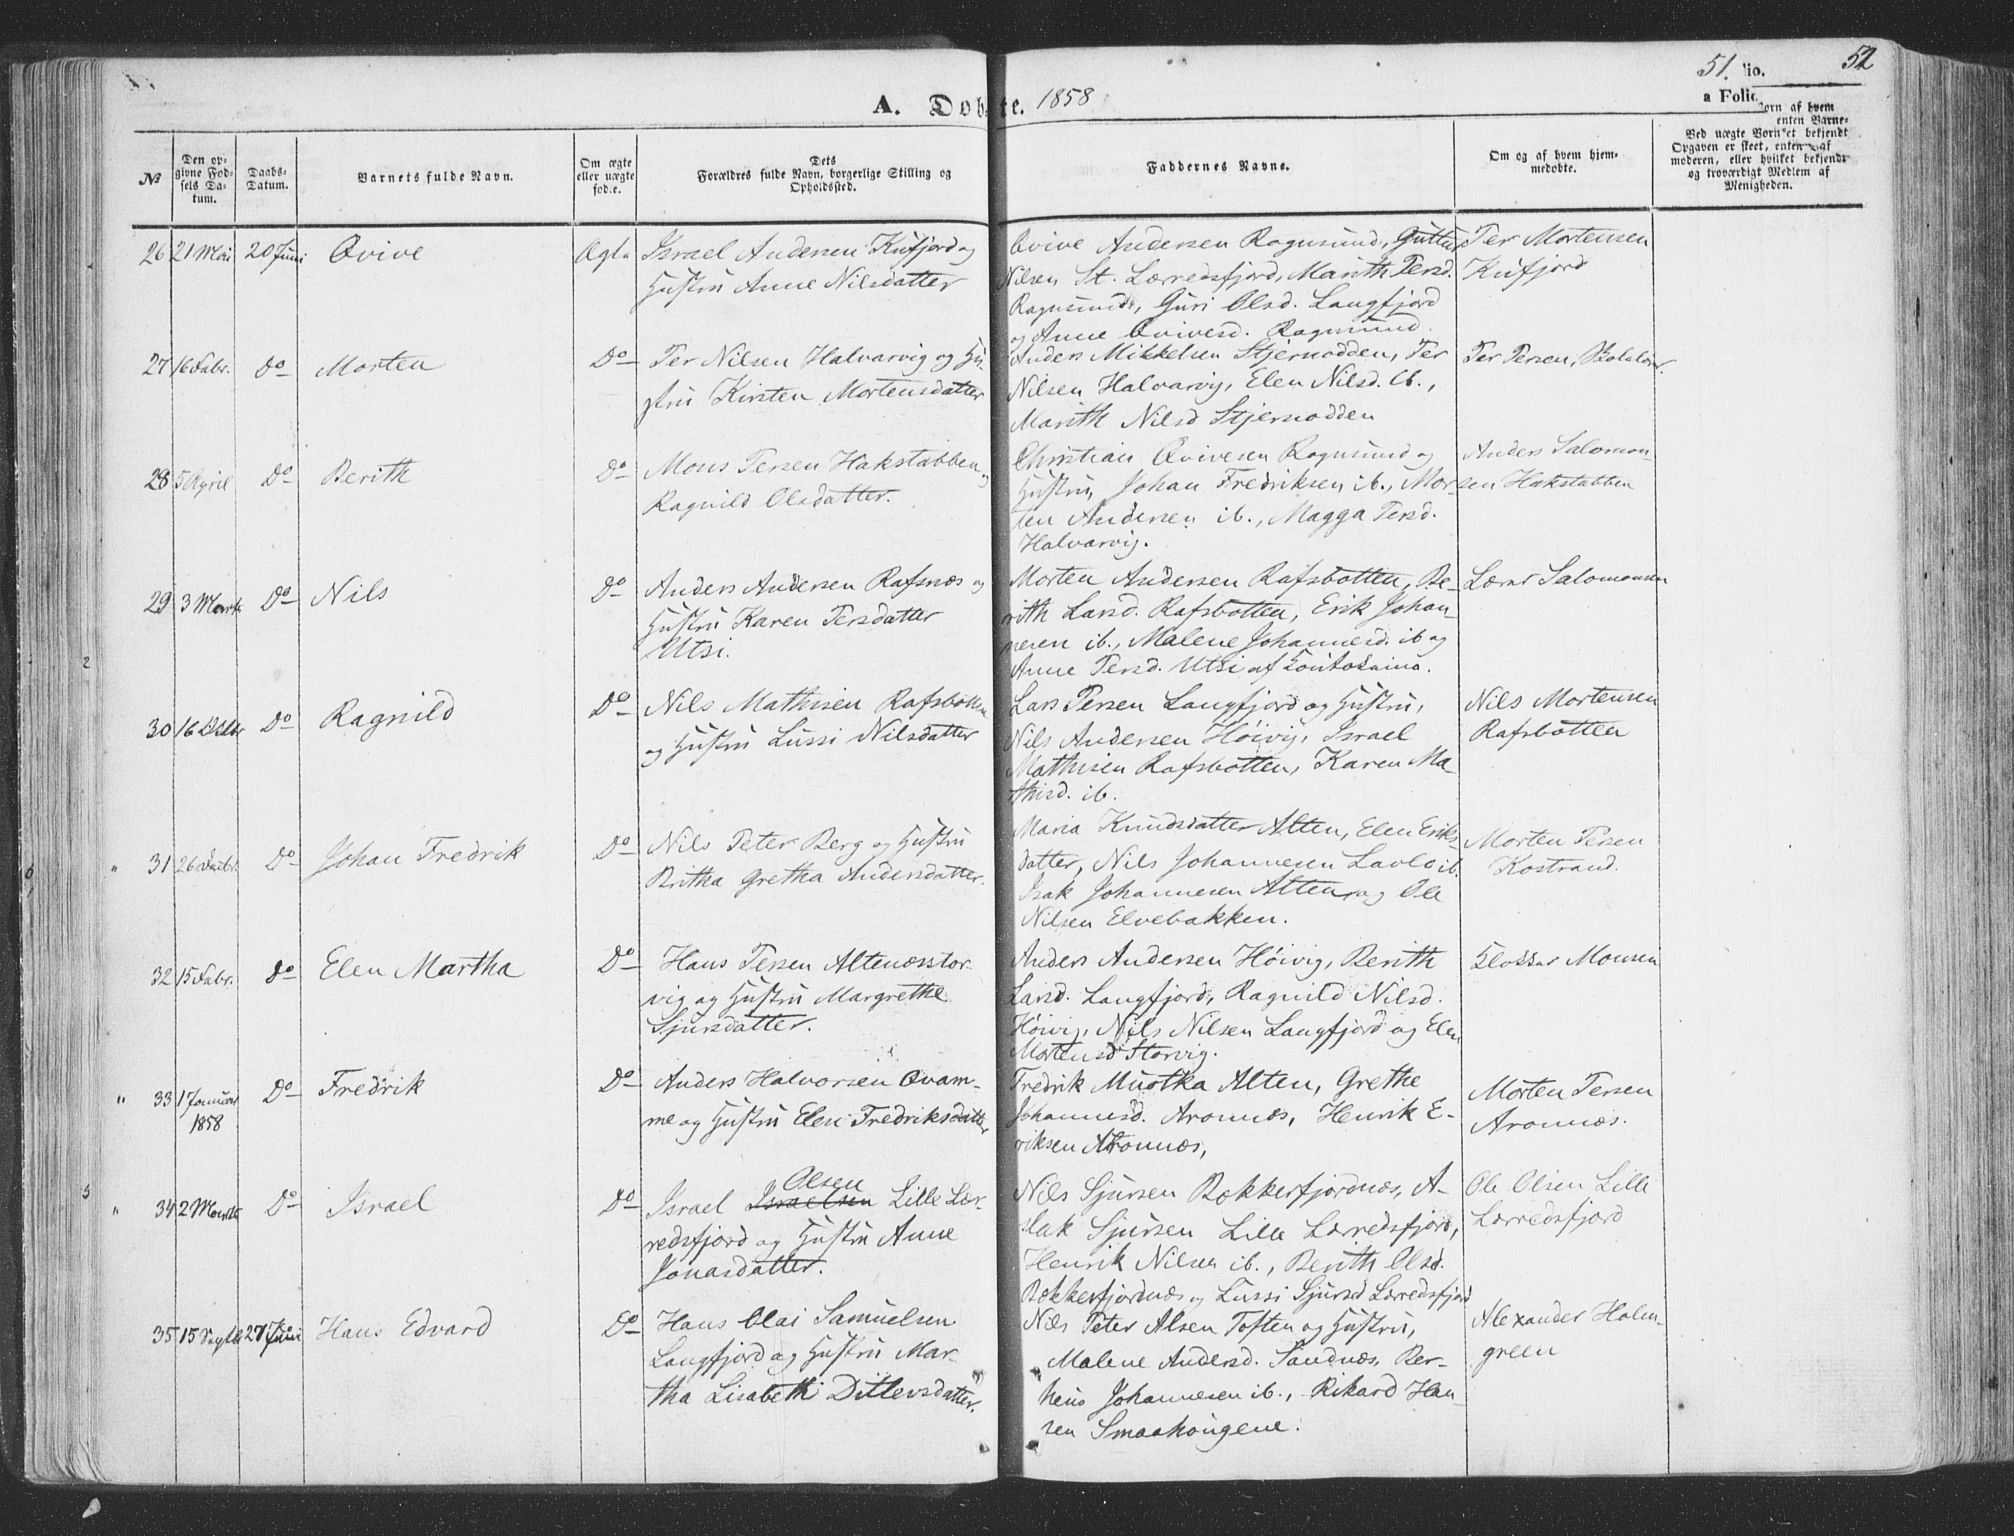 51.
52
A. Døbte. 1858
a Folio
No
Den op-
givne Fød-
sels Da-
tum.
Daabs-
Datum.
Barnets fulde Navn.
Om ægte
eller uægte
fødte.
Dets
Forældres fulde Navn, borgerlige Stilling og
Opholdssted.
Faddernes Navne.
Om og af hvem hjem-
medøbte.
Ved uægte Børn
moderen, eller hvilket bekjendt
og troværdigt Medlem af
Menigheden.
26 21 Mai 20 Juni Qvive Ægte Israel Andersen Kufjord og
Hustru Anne Nilsdatter
Qvive Andersen Rognsund, Guttur
Nilsen St. Lærredsfjord, Marith Persd.
Rognsund, Guri Olsd. Langfjord
og Anne Qvivesd. Rognsund.
Per Mortensen
Kufjord
27 16 Febr. Do Morten Do Per Nilsen Halvarvig og Hu-
stru Kirsten Mortensdatter
Anders Mikkelsen Stjernodden, Per
Nilsen Halvarvig, Elen Nilsd. ib.,
Marith Nilsd Stjernodden
Per Persen,
28 5 April Do Berith Do Mons Persen Hakstabben og
Ragnild Olsdatter.
Christian Qvivesen Rognsund og
Hustru, Johan Fredriksen ib., Mor-
ten Andersen ib., Magga Persd.
Halvarvig.
Anders Salomon-
sen Hakstabben
29 3 Marts Do Nils Do Anders Andersen Rafsnæs og
Hustru Karen Persdatter
Utsi.
Morten Andersen Rafsbotten, Be-
rith Larsd. Rafsbotten, Erik Johan-
nesen ib., Malene Johannesd. ib og
Anne Persd. Utsi af Koutokeino.
Salomonsen
30 16 Do Ragnild Do Nils Mathisen Rafsbotten
og Hustru Lussi Nilsdatter
Lars Persen Langfjord og Hustru,
Nils Andersen Höivig, Israel
Mathisen Rafsbotten, Karen Ma-
thisd. ib.
Nils Mortensen
Rafsbotten
31 26 Febr. Do Johan Fredrik Do Nils Peter Berg og Hustru
Britha Gretha Andersdatter.
Maria Knudsdatter Alten, Elen Eriks-
datter, Nils Johannesen Lavlo ib.
Isak Johannesen Alten og Ole
Nilsen Elvebakken.
Morten Persen
Kostrand.
32 15 Febr. Do Elen Martha Do Hans Persen Altenæsstor-
vig og Hustru Margrethe
Sjursdatter.
Anders Andersen Höivig, Berith
Larsd. Langfjord, Ragnild Nilsd.
Höivig, Nils Nilsen Langfjord og Elen
Mortensd Storvig.
Klokker Monsen
33 1 Januar
1858
Do Fredrik Do Anders Halvorsen Qvam-
me og Hustru Elen Fredriksdatter
Fredrik Muotka Alten, Grethe
Johannesd. Aronnæs, Henrik E-
riksen Aronnæs,
Morten Persen
Aronnæs.
34 2 Marts Do Israel Do Israel Israelsen Olsen Lille Lær-
redsfjord og Hustru Anne
Jonasdatter.
Nils Sjursen Bækkerfjordnæs, A-
slak Sjursen Lille Lærredsfjord,
Henrik Nilsen ib., Berith Olsd.
Bækkerfjordnæs og Lussi Sjursd Lærredsfjord
Ole Olsen Lille
Lærredsfjord
35 15 Septb. 27 Juni Hans Edvard Do Hans Olai Samuelsen
Langfjord og Hustru Mar-
tha Lisabeth Ditlevsdatter.
Nils Peter Alsen Toften og Hustru,
Malene Andersd. Sandnæs, Ber-
heus Johannesen ib., Rikard Han-
sen Smaahougene.
Alexander Holm-
green